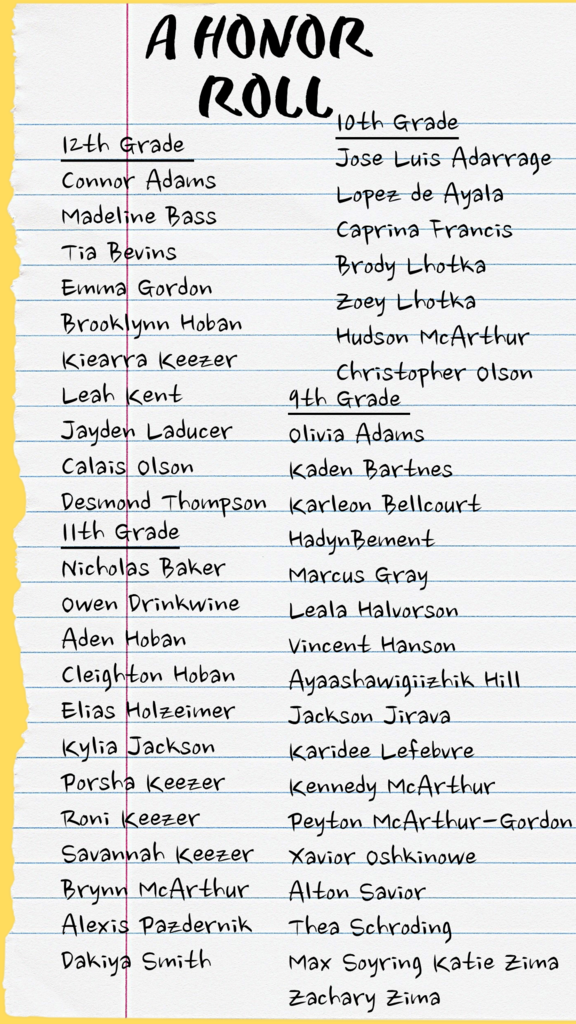 A HONOR
ROLL
12th Grade
Connor Adams
Madeline Bass
Tia Bevins
Emma Gordon
Brooklynn Hoban
Kiearra Keezer
Leah Kent
Jayden Laducer
Calais Olson
Desmond Thompson
11th Grade
Nicholas Baker
Owen Drinkwine
Aden Hoban
Cleighton Hoban
Elias Holzeimer
Kylia Jackson
Porsha Keezer
Roni Keezer
Savannah Keezer
Brynn McArthur
Alexis Pazdernik
Dakiya Smith
10th Grade
Jose Luis Adarrage
Lopez de Ayala
Caprina Francis
Brody Lhotka
Zoey Lhotka
Hudson McArthur
Christopher Olson
9th Grade
Olivia Adams
Kaden Bartnes
Karleon Bellcourt
HadynBement
Marcus Gray
Leala Halvorson
Vincent Hanson
Ayaashawigiizhik Hill
Jackson Jirava
Karidee Lefebvre
Kennedy McArthur
Peyton McArthur-Gordon
Xavior Oshkinowe
Alton Savior
Thea Schroding
Max Soyring Katie Zima
Zachary Zima